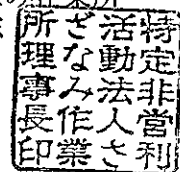 特定非營利
活動法人さ
ざなみ作業
所理事長印